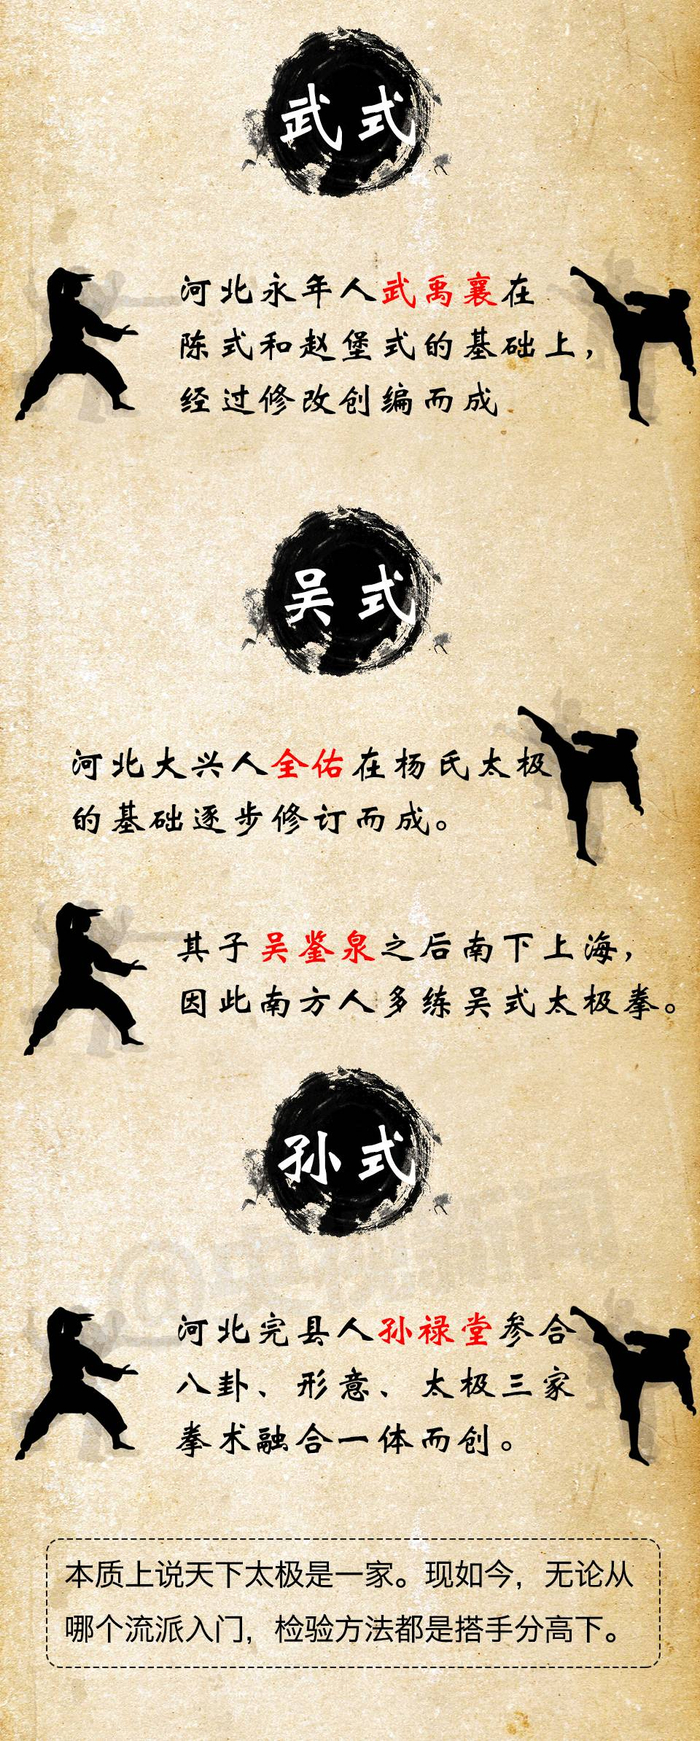 武式
河北永年人武禹襄在
陈式和赵堡式的基础上，
经过修改创编而成
吴式
河北大兴人全佑在杨氏太极
的基础逐步修订而成。
其子吴鉴泉之后南下上海，
因此南方人多练吴式太极拳。
孙式
河北完县人孙禄堂参合
八卦、形意、太极三家
拳术融合一体而创。
本质上说天下太极是一家。现如今，无论从
哪个流派入门，检验方法都是搭手分高下。